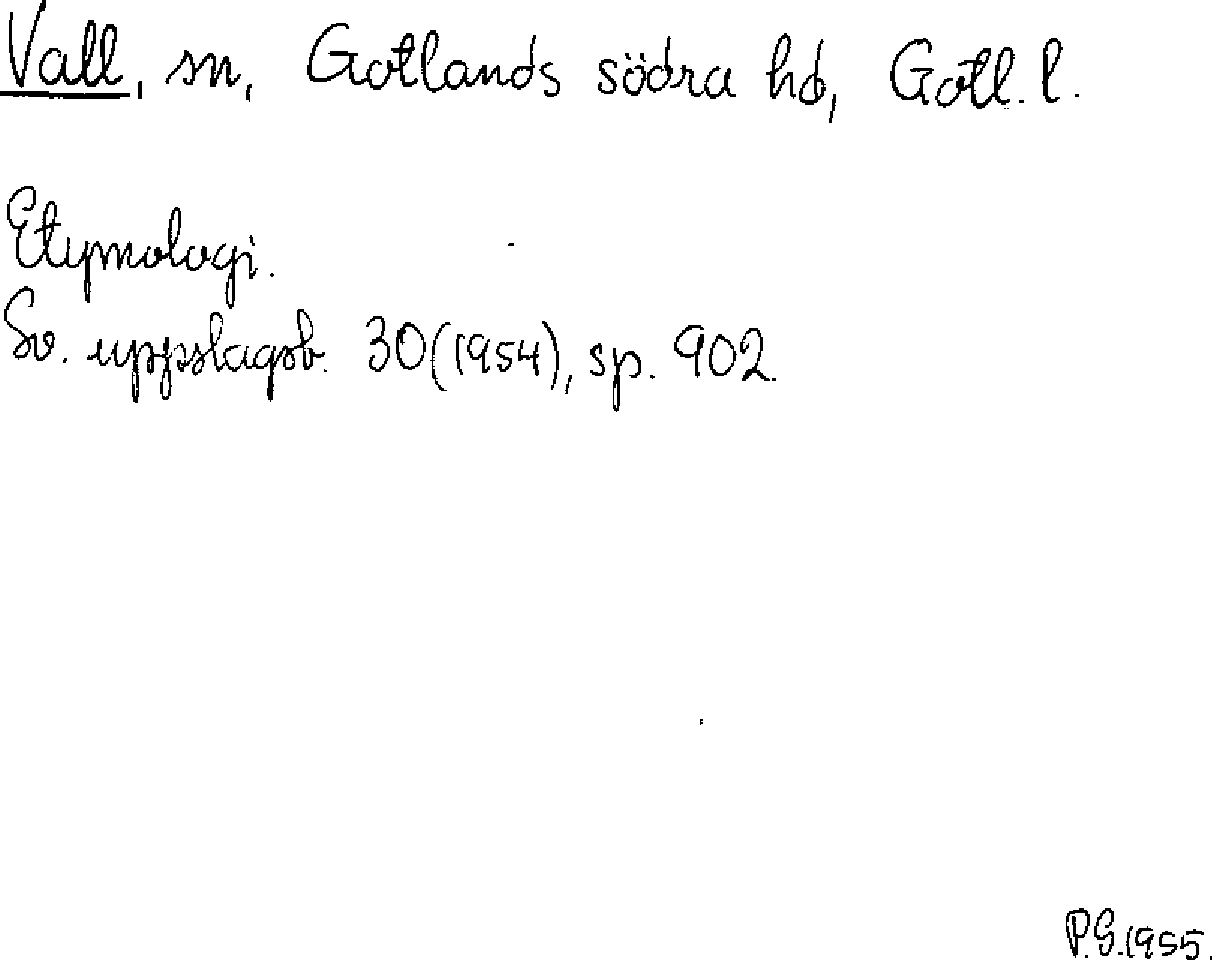 Vall, sn, Gotlands södra hd, Gotl. l.
Etymologi.
Sv. uppslagsb. 30 (1954), sp. 902.
P.G. 1955.